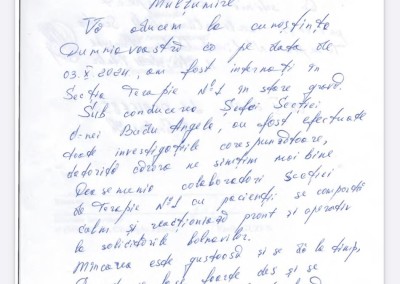 Mulțumire
Vă aducem la cunoștința
Dumneavoastră că pe data de
03.X.2024, am fost internați în
Secția Terapie Nº1 în stare gravă.
Sub conducerea Șefei Secției
d-nei Buzdu Angela, au fost efectuate
toate investigațiile corespunzătoare,
datorită cărora ne simțim mai bine
Deasemenea colaboratorii Secției
de Terapie Nº1 cu pacienții se comportă
calm și reacționează pront și operativ
la solicitările bolnavilor.
Mîncarea este gustoasă și se dă la timp,
foarte des și se